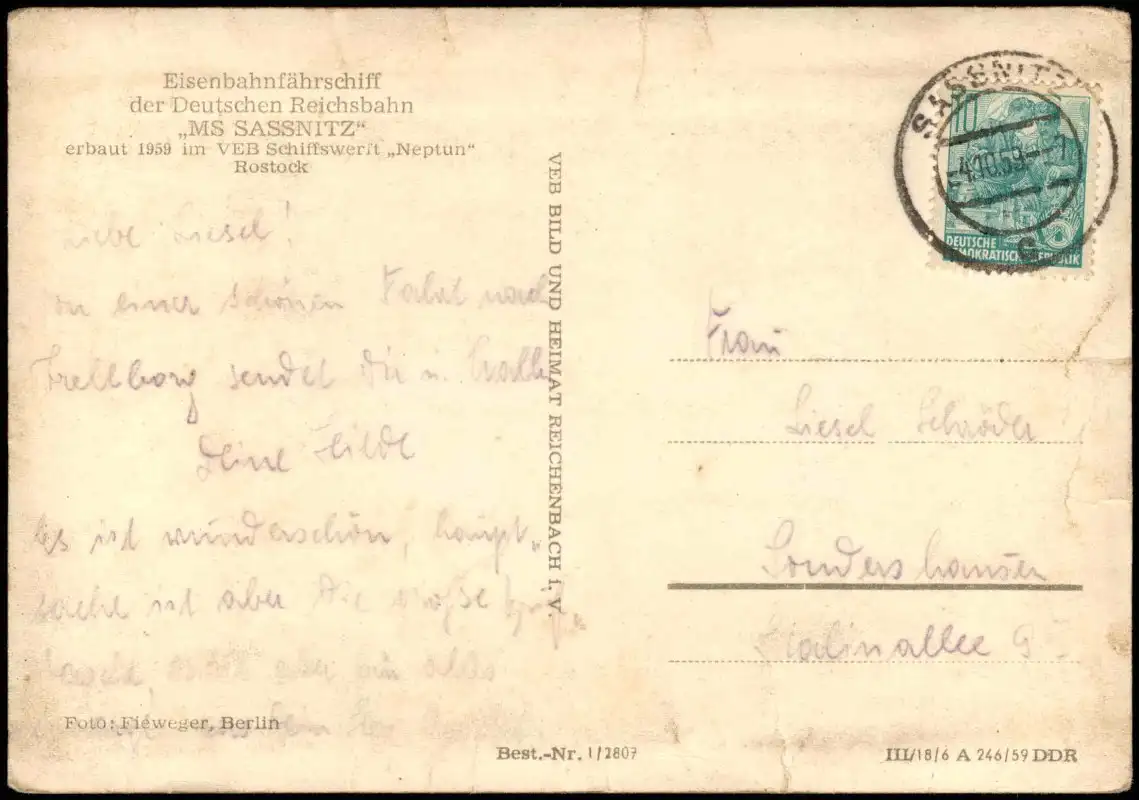 Eisenbahnfährschiff
der Deutschen Reichsbahn
„MS SASSNITZ“
erbaut 1959 im VEB Schiffswerft „Neptun“
Rostock
Liebe Liesel!
einer schönen Fahrt nach
Trelleborg sendet Dir u.
Deine Hilde
Es ist wunderschön, haupt„
sache ist aber die große
alles
Foto: Fieweger, Berlin
VEB BILD UND HEIMAT REICHENBACH i. V.
Best.-Nr. 1/2807
SASSNITZ
-4.10.59--7
10
DEUTSCHE
DEMOKRATISCHE REPUBLIK
Frau
Liesel Schröder
Sondershausen
Stalinallee
III/18/6 A 246/59 DDR